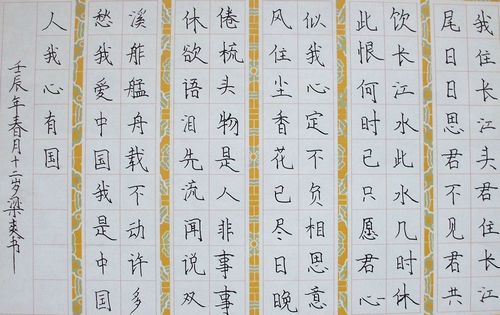 我住长江头君住长江
尾日日思君不见君共
饮长江水此水几时休
此恨何时已只愿君心
似我心定不负相思意
风住尘香花已尽日晚
倦梳头物是人非事事
休欲语泪先流闻说双
溪舴艋舟载不动许多
愁我爱中国我是中国
人我心有国
壬辰年春月十二岁梁书